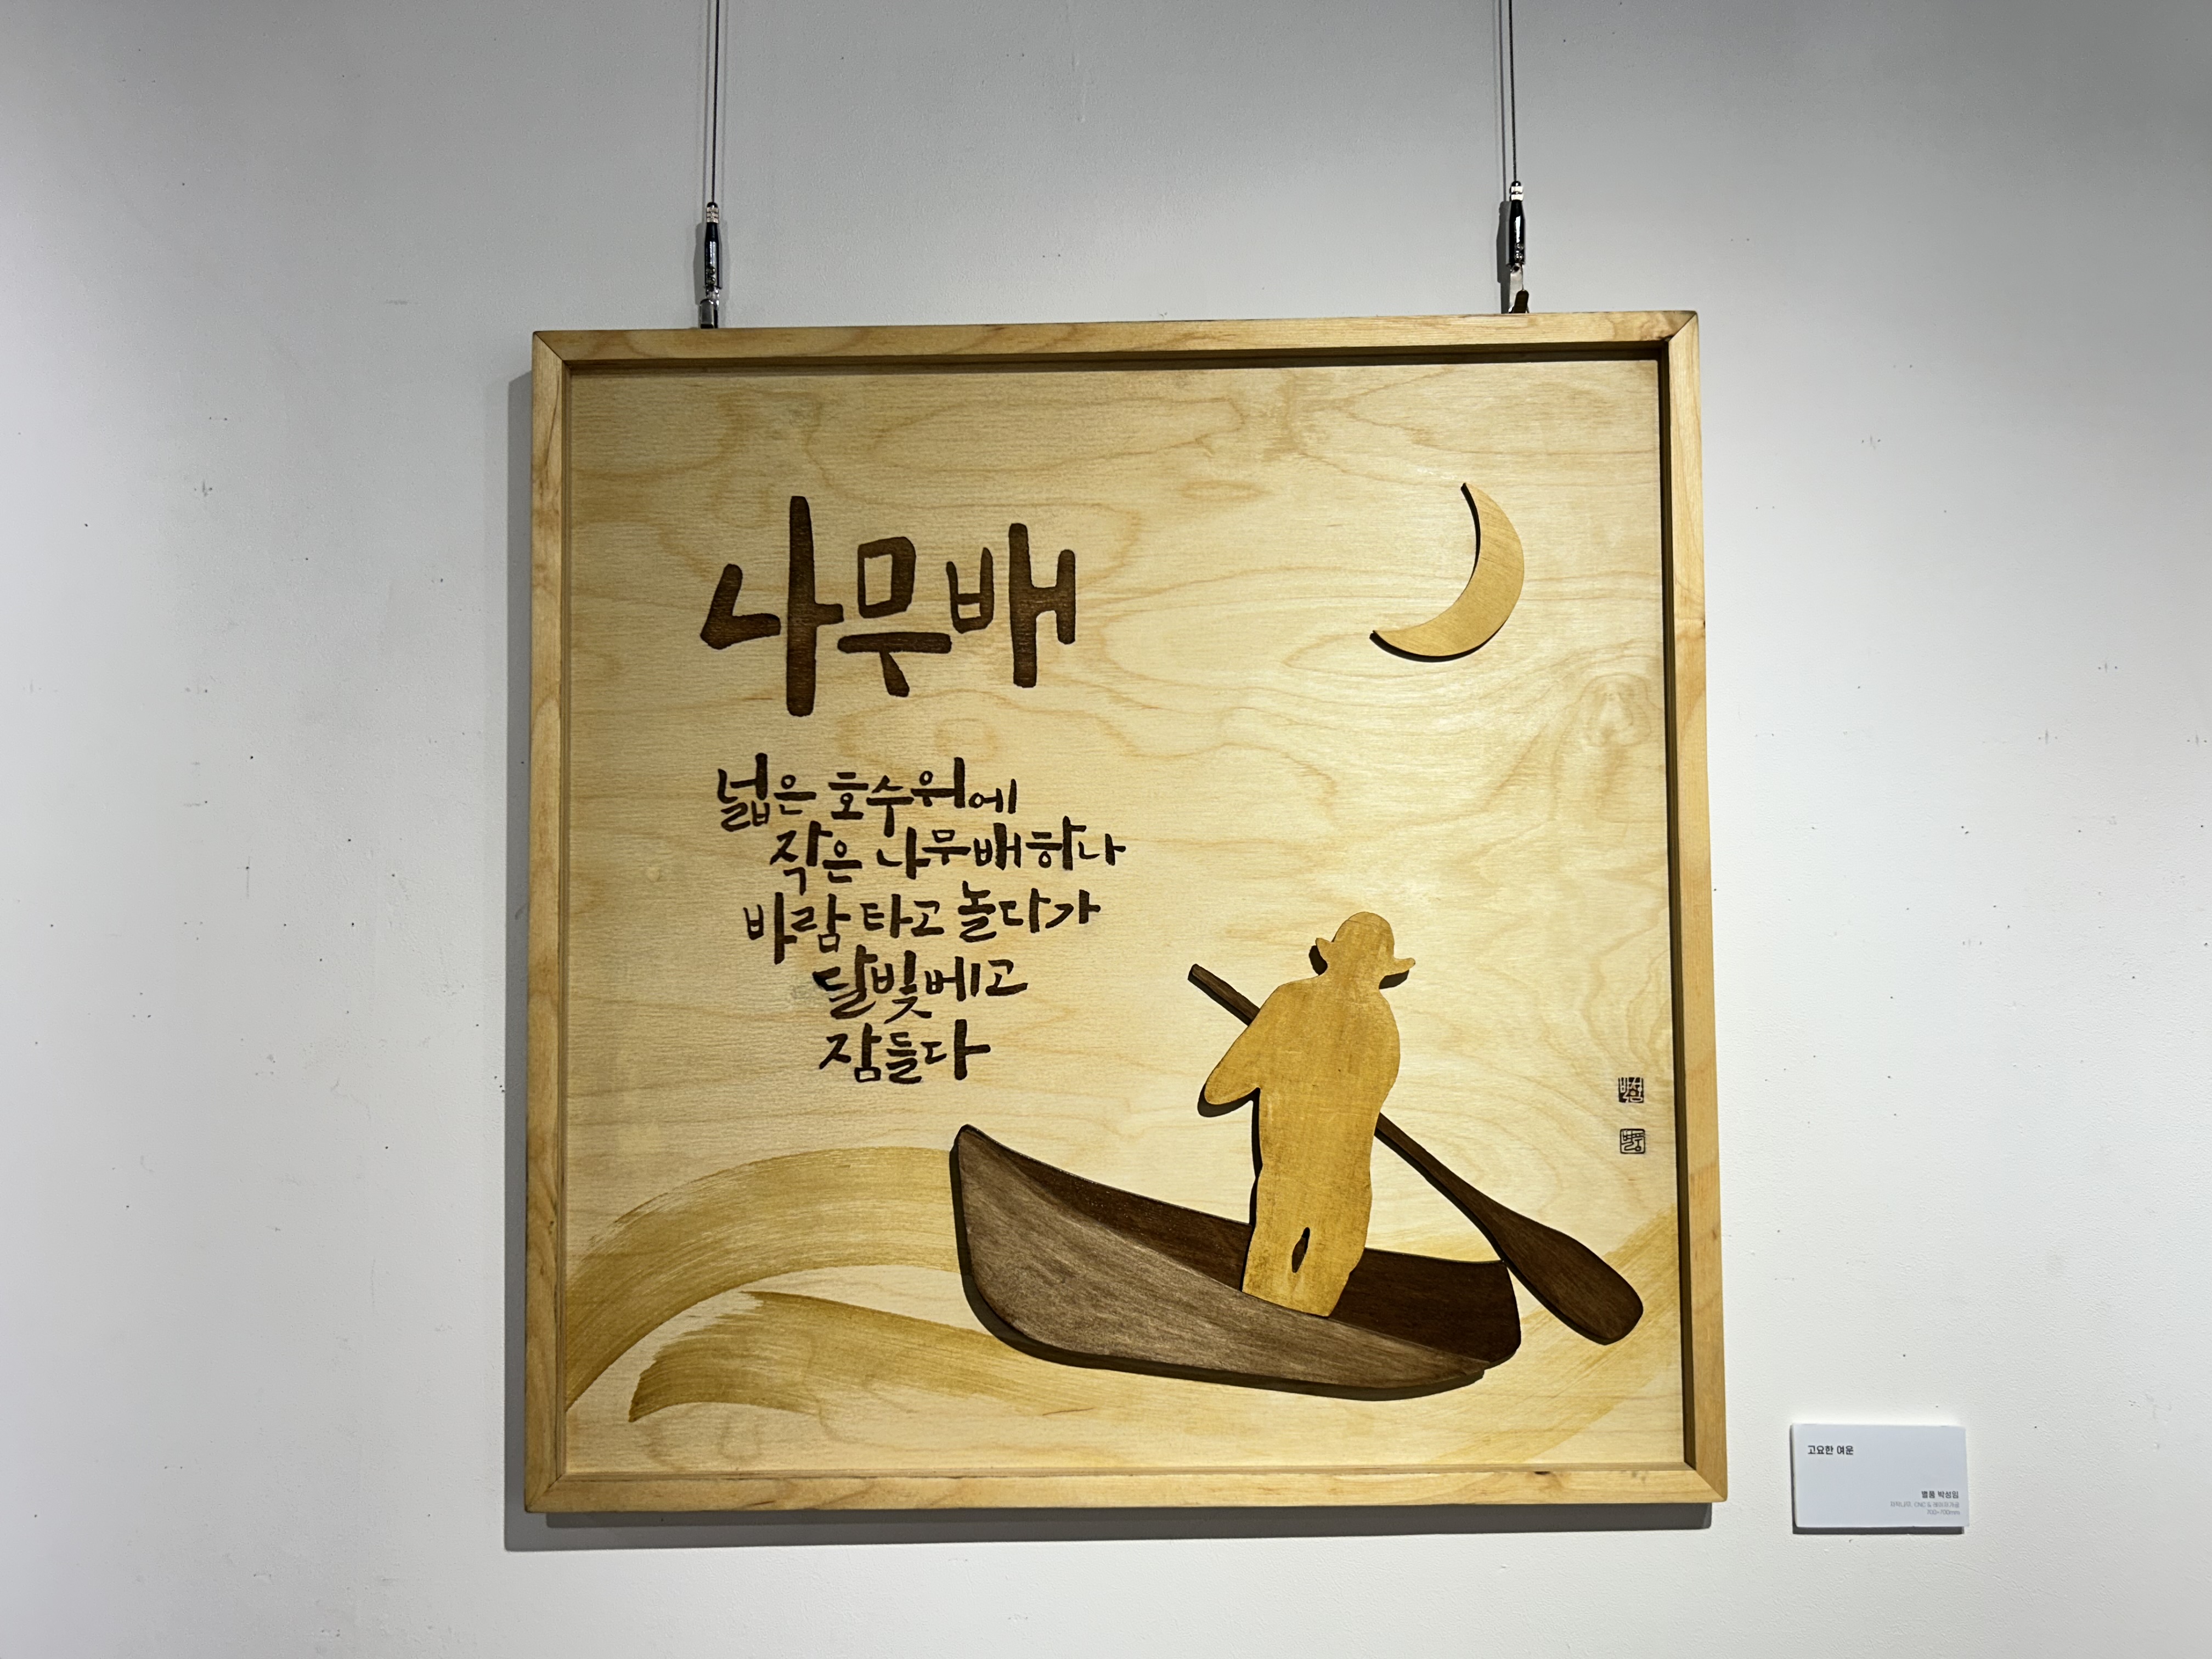 나무배
넓은 호수위에
작은 나무배하나
바람 타고 놀다가
달빛베고
잠들다
고요한 여운
별품 박성임
700×700mm